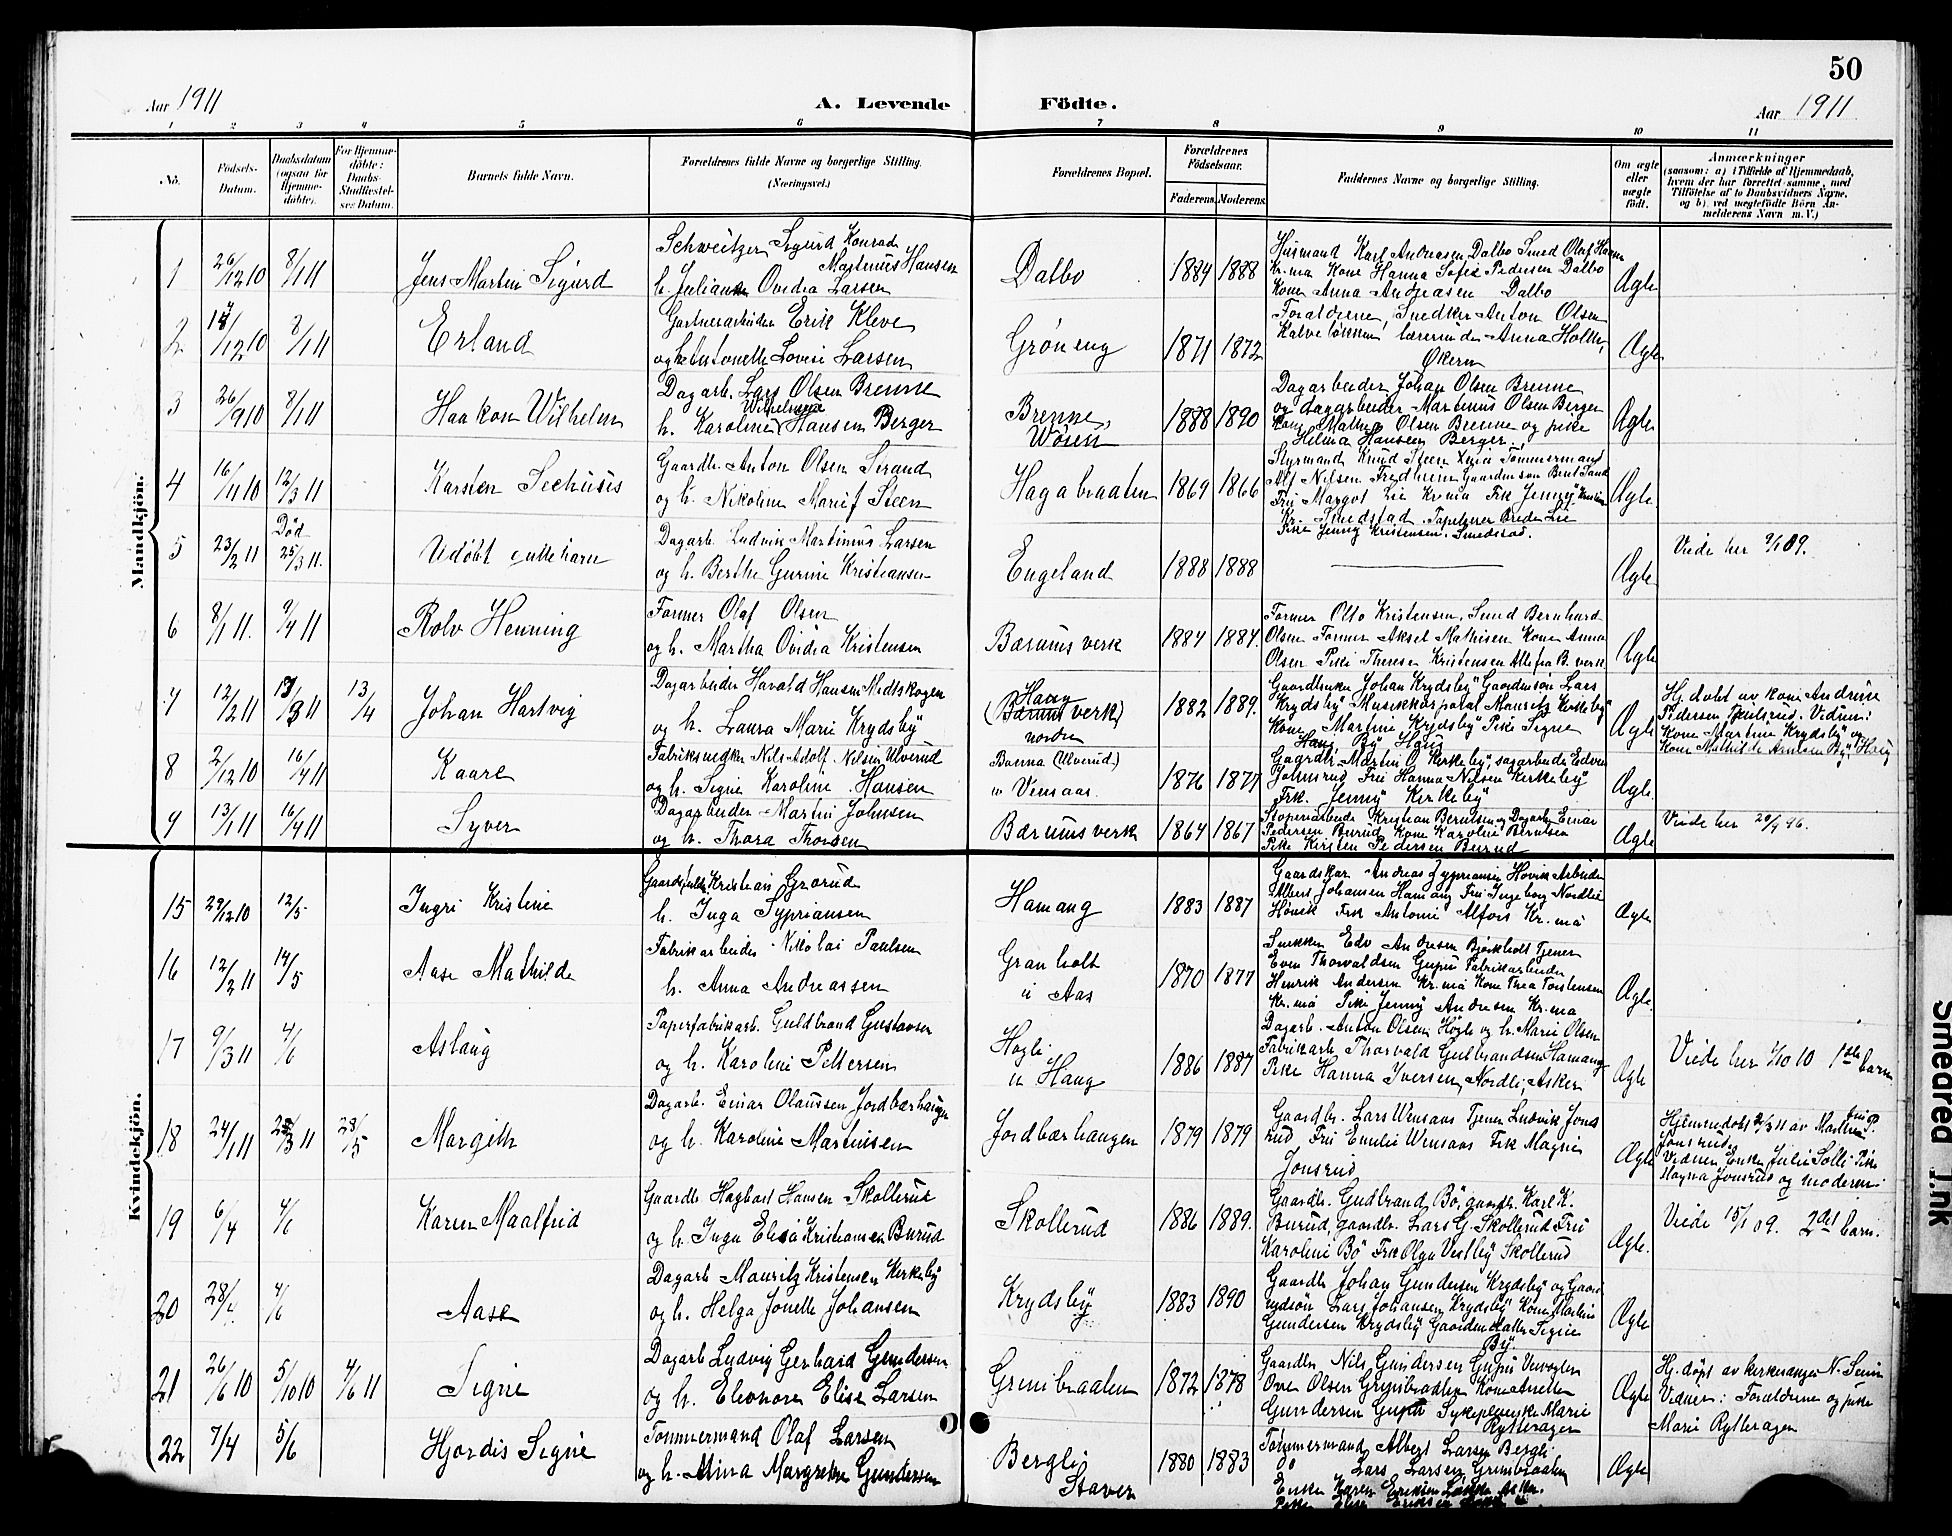 50
Aar 1911
A. Levende
Födte.
Aar 1911
1 2 3 4 5 6 7 8 9 10 11
Nö.
Födsels-
Datum.
Daabsdatum
(ogsaa for
Hjemme-
döbte).
For Hjemme-
döbte:
Daabs-
Stadfæstel-
ses Datum.
Barnets fulde Navn.
Forældrenes fulde Navne og borgerlige Stilling.
(Næringsvei.)
Forældrenes Bopæl.
Forældrenes
Födselsaar.
Faderens. Moderens.
Faddernes Navne og borgerlige Stilling.
Om ægte
eller
uægte
födt.
Anmærkninger
(saasom: a) i Tilfælde af Hjemmedaab,
hvem der har forrettet samme, med
Tilföielse af to Daabsvidners Navne,
og b) ved uægtefödte Börn An-
melderens Navn m. V.)
Mandkjön.
1 26/12 10 8/1 11 Jens Martin Sigurd
Schweitzer Sigurd Konrad
Martinus Hansen
h. Juliane Ovidia Larsen
Dalbo 1884 1888
Husmand Karl Andreasen Dalbo Smed Olaf
Kr.ma Kone Hanna Sofie Pedersen Dalbo
Kone Anna Andreasen Dalbo
Ægte
2 /12 10 8/1 11 Erland
Gartnerarbeider Erik Kleve
og h. Antonette Lovise Larsen
Grøneng 1871 1872
Forældrene, Snedker Anton Olsen
Kalveløkken, lærerinde Anna Holte,
Økern
Ægte
3 26/9 10 8/1 11 Haakon Wilhelm
Dagarb. Lars Olsen Brenne
Wilhelmine
h. Karoline Hansen Berger
Brenne,
Wøien
1888 1890
Dagarbeider Johan Olsen Brenne
og dagarbeider Martinus Olsen Berger
Kone Mathea Olsen Brenne og pike
Helma Hansen Berger.
Ægte
4 16/11 10 12/3 11 Karsten Seehuus
Gaardb. Anton Olsen Strand
og h. Nikoline Marie Steen
Hagabraaten 1869 1866
Styrmand Knud Steen Tømmermand
Alf Nilsen Fredheim Gaardmand
Fru Margot Lie Kr.ania Frk Jenny
Kr. Smedstad. Tapetserer Lie
Pike Jenny Kristensen. Smedstad.
Ægte
5 23/2 11 Död 25/3 11. Udöbt guttebarn
Dagarb. Ludvik Martinus Larsen
og h. Berthe Gurine Kristiansen
Engeland 1888 1888
Ægte
Viede her 9/1 09.
6 8/1 11. 9/4 11 Rolv Henning
Former Olaf Olsen
og h. Martha Ovidia Kristensen
Bærums verk 1884 1884.
Former Otto Kristensen, Smed Bernhard
Olsen Former Aksel Mathisen Kone Anna
Olsen Pike Therese Kristensen Alle fra B. verk
Ægte
7 12/2 11 /3 11 13/4 Johan Hartvig
Dagarbeider Harald Hansen Midtskogen
og h. Laura Marie Krydsby
Haug
(Bærums verk)
nordre
1882 1889.
Gaardbruker Johan Krydsby Gaardmandsøn Lars
Krydsby Musikkorporal Mauritz Kirkeby
Kone Martine Krydsby Pike Signe
Haug, By Haug
Ægte
Hj. døbt av kone Andrine
Pedersen. Vidner:
Kone Martine Krydsby og
Kone Mathilde By, Haug
8 2/12 10 16/4 11 Kaare
Fabriksnedker Nils Adolf Nilsen Ulverud
og h. Signe Karoline Hansen
Banna (Ulverud)
u Vensaas.
1876 1877
Gaardbr. Martin O Kirkeby, sagarbeider Edvin
Johnsrud Fru Hanna Nilsen Kirkeby
Frk. Jenny Kirkeby
Ægte
9 13/1 11 16/4 11 Syver
Dagarbeider Martin Johnsen
og h. Thora Thorsen
Bærums verk 1864 1867
Støperiarbeide Kristian Berntsen og Dagarb Einar
Pedersen Burud Kone Karoline Berntsen
Pike Kirsten Pedersen Burud
Ægte
Viede her 20/9 96.
Kvindekjön.
15 29/12 10 12/5 Ingri Kristine
Kristian Grorud
h. Inga Sypriansen
Hamang 1883 1887
Gaardskar Andreas Zypriansen Høvik Arbeider
Albert Johansen Hamang Fru Ingeborg Nordlie
Høvik Frk Antonie Alfors Kr.ma
Ægte
16 12/2 11 14/5 Aase Mathilde
Fabrikarbeider Nikolai Paulsen
h. Anna Andreassen
Granholt
u Aas
1870 1877
Snekker Edv Andresen Bjerkholt Tjener
Even Thorvaldsen Gupu Fabrikarbeider
Henrik Andersen Kr.ma Kone Thea Torstensen
Kr.ma Pike Jenny Andresen Kr.ma
Ægte
17 9/3 11 4/6 Aslaug
Papirfabrikarb. Guldbrand Gustavsen
og h. Karoline Pettersen
Høgli
u Haug
1886 1887
Dagarb. Anton Olsen Høgli og h. Marie Olsen
Fabrikarb Thorvald Gulbrandsen Hamang
Pike Hanna Iversen, Nordli, Asker
Ægte
Viede her /10 10 1ste barn
18 24/1 11 /3 11 28/5 Margith
Dagarb. Einar Olaussen Jordbærhaugen
og h. Karoline Martinsen
Jordbærhaugen 1879 1879
Gaardbr. Lars Wensaas Tjener Ludvik Jons
rud Fru Emilie Wensaas Frk Magna
Jonsrud
Ægte
Hjemmedøbt /3 11 av fru Mathea P.
Jonsrud
Vidner Enke Julie Solli Pike
Magna Jonsrud og moderen.
19 6/4 4/6 Karen Maalfrid
Gaardbr Hagbart Hansen Skollerud
og h. Inga Elisa Kristiansen Burud
Skollerud 1886 1889.
Gaardbr. Gudbrand Bø, gaardbr. Karl K.
Burud, gaardbr. Lars G. Skollerud Fru
Karoline Bø Frk Olga Vestby Skollerud
Ægte.
Viede 15/1 09. 2det barn.
20 28/4 4/6 Aase
Dagarb Mauritz Kristensen Kirkeby
og h. Helga Jonette Johansen
Krydsby 1883 1890
Gaardbr Johan Gundersen Krydsby og Gaard
mandsøn Lars Johansen Krydsby Kone Martine
Gundersen Krydsby Gaardmdatter Signe
By.
Ægte
21 26/6 10 5/10 10 4/6 11 Signe
Dagarb Ludvig Gerhard Gundersen
og h. Eleonora Elise Larsen
Grinibraaten 1872 1878
Gaardbr Nils Gundersen Gupu
Ove Olsen Grinibraaten Kone Anette
Gundersen Gupu Sykepleierske Marie
Rytterager
Ægte
Hj. døpt av kirkesanger N. Seim
Vidner: Forældrene og pike
Marie Rytteragen
22 7/4 5/6 Hjordis Signe
Tømmermand Olaf Larsen
og h. Mina Margrethe Gundersen
Bergli
Staver
1880 1883
Tømmermand Albert Larsen Bergli
do Lars Larsen Grinibraaten
Enke Karen Eriksen Løkke Asker.
Pike Elise Eriksen
Ægte
Smeared Ink